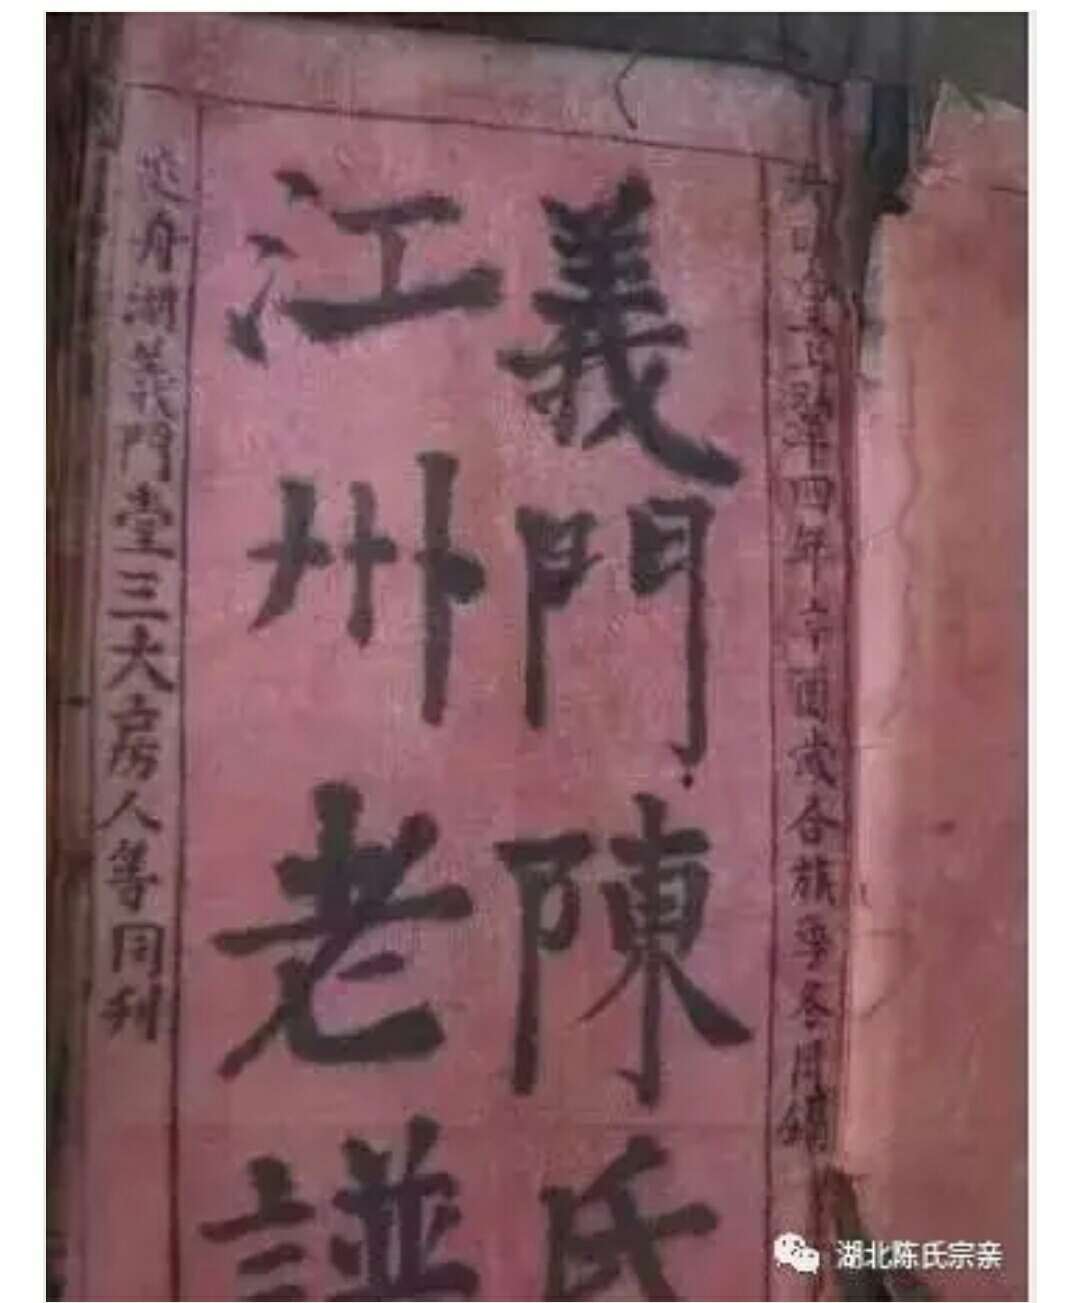 四年辛酉歲合族
義門陳氏
江州老譜
舟湖義門堂三大房人等同刊
湖北陈氏宗亲